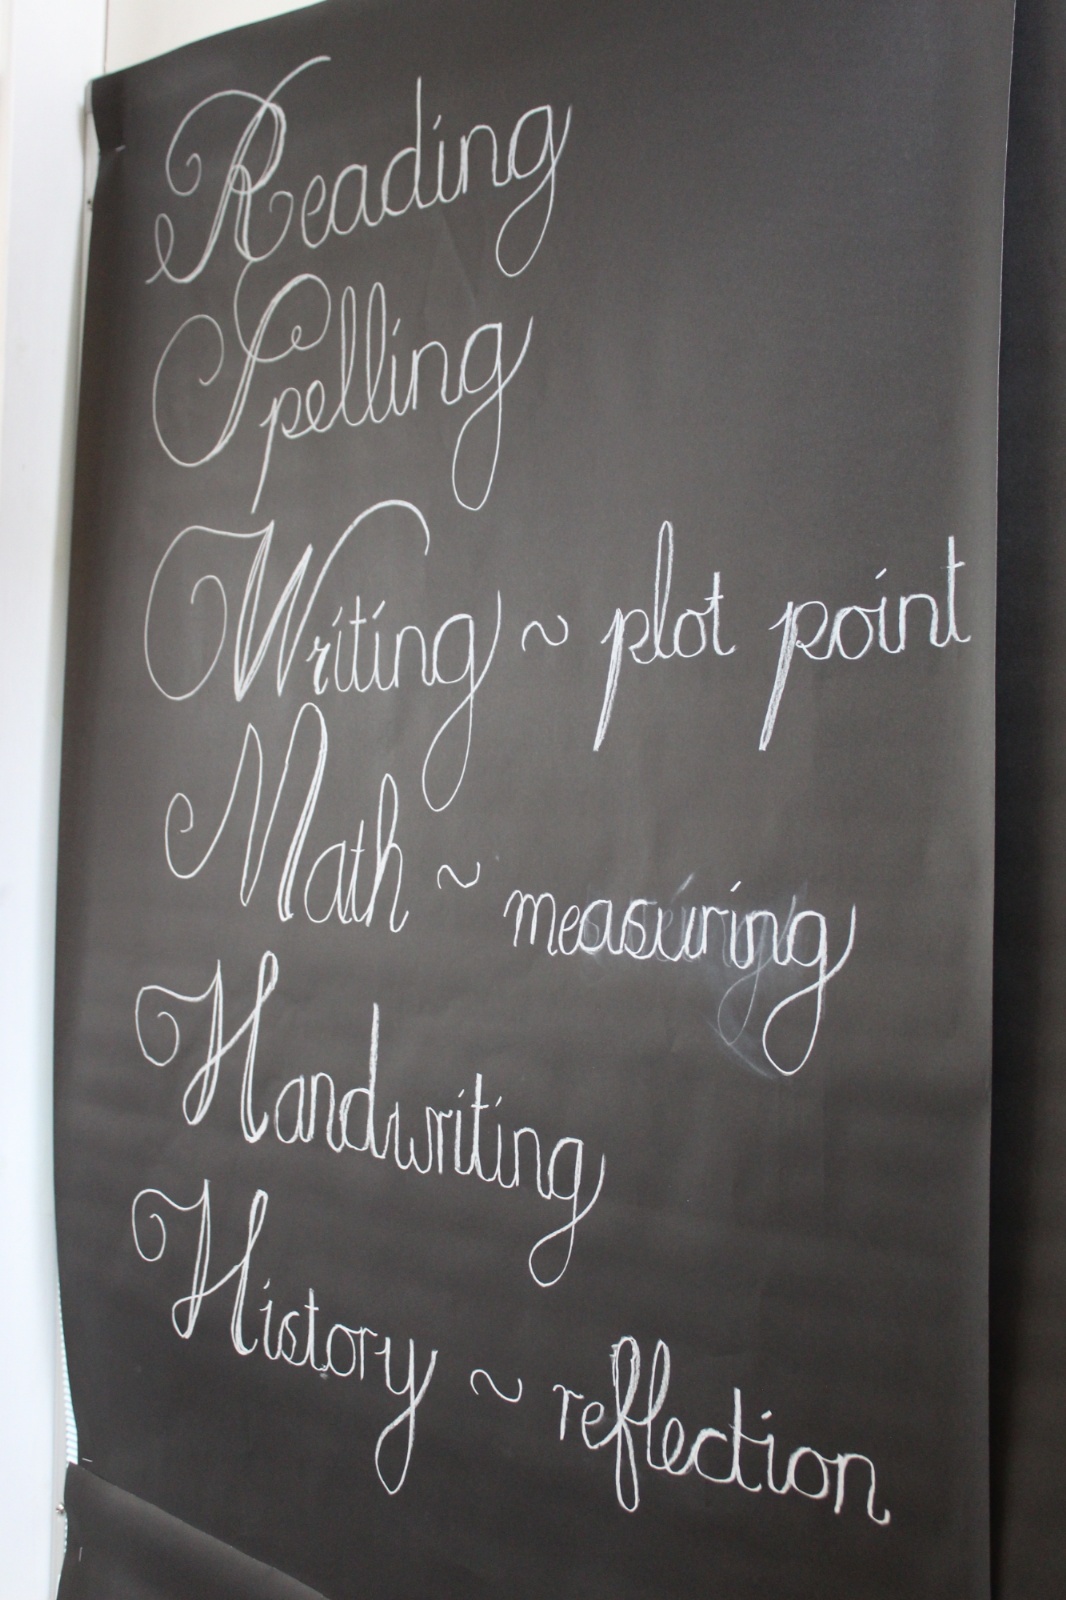 Reading
Spelling
Writing ~ plot point
Math ~ measuring
Handwriting
History ~ reflection